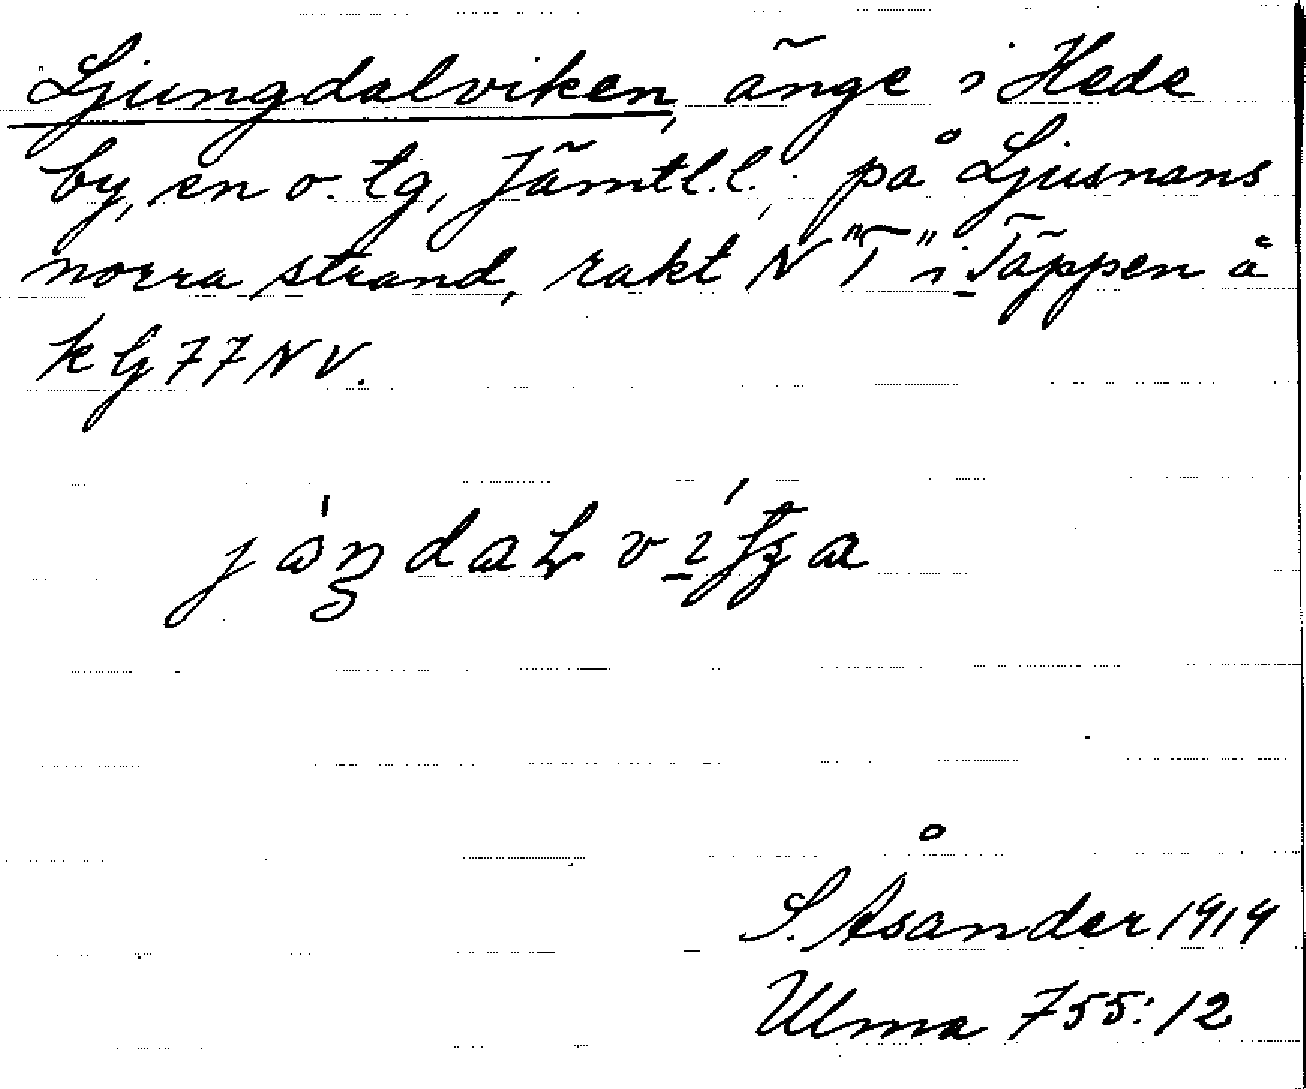 Ljungdalviken, änge i Hede
by, sn o. tg, Jämtl.l., på Ljusnans
norra strand, rakt N "T" i Täppen å
kbl 77 NV.
S. Åsander 1919
Ulma 755:12